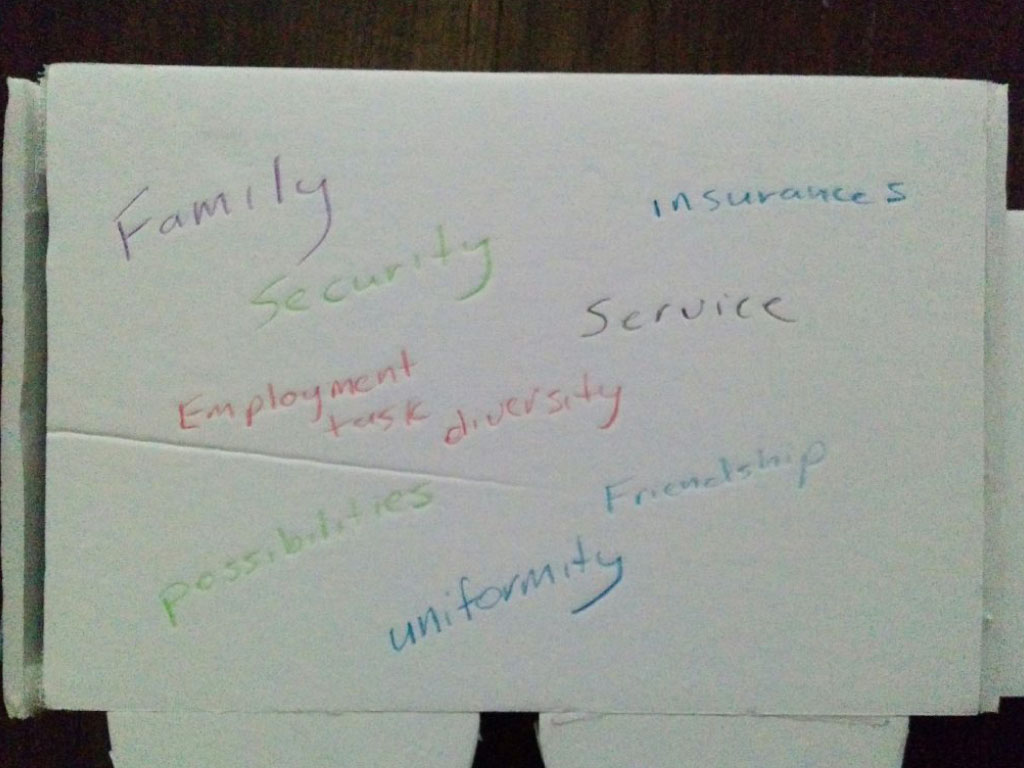 Family
insurances
Security
Service
Employment
task diversity
Friendship
possibilities
uniformity